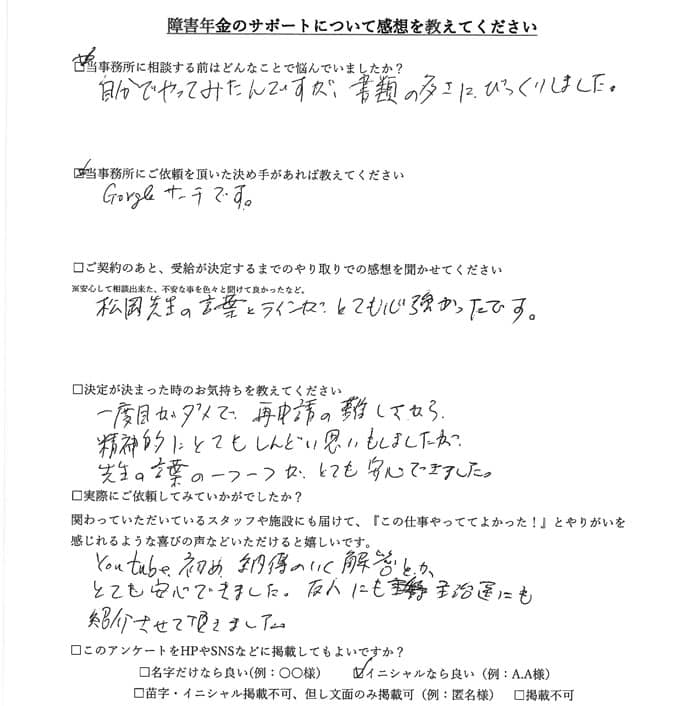 障害年金のサポートについて感想を教えてください
☑当事務所に相談する前はどんなことで悩んでいましたか？
自分でやってみたんですが、書類の多さに、びっくりしました。
☑当事務所にご依頼を頂いた決め手があれば教えてください
Googleサーチです。
□ご契約のあと、受給が決定するまでのやり取りでの感想を聞かせてください
※安心して相談出来た、不安な事を色々と聞けて良かったなど。
松岡先生の言葉とラインが、とても心強かったです。
□決定が決まった時のお気持ちを教えてください
一度目がダメで、再申請の難しさから、
精神的にとてもしんどい思いもしましたが、
先生の言葉の一つ一つが、とても安心できました。
□実際にご依頼してみていかがでしたか？
関わっていただいているスタッフや施設にも届けて、『この仕事やっててよかった！』とやりがいを
感じれるような喜びの声などいただけると嬉しいです。
Youtube、初め、納得のいく解答とか、
とても安心できました。友人にも 主治医にも
紹介させて頂きました。
□このアンケートをHPやSNSなどに掲載してもよいですか？
□名字だけなら良い(例：〇〇様） ☑イニシャルなら良い（例：A.A様）
□苗字・イニシャル掲載不可、但し文面のみ掲載可（例：匿名様） □掲載不可